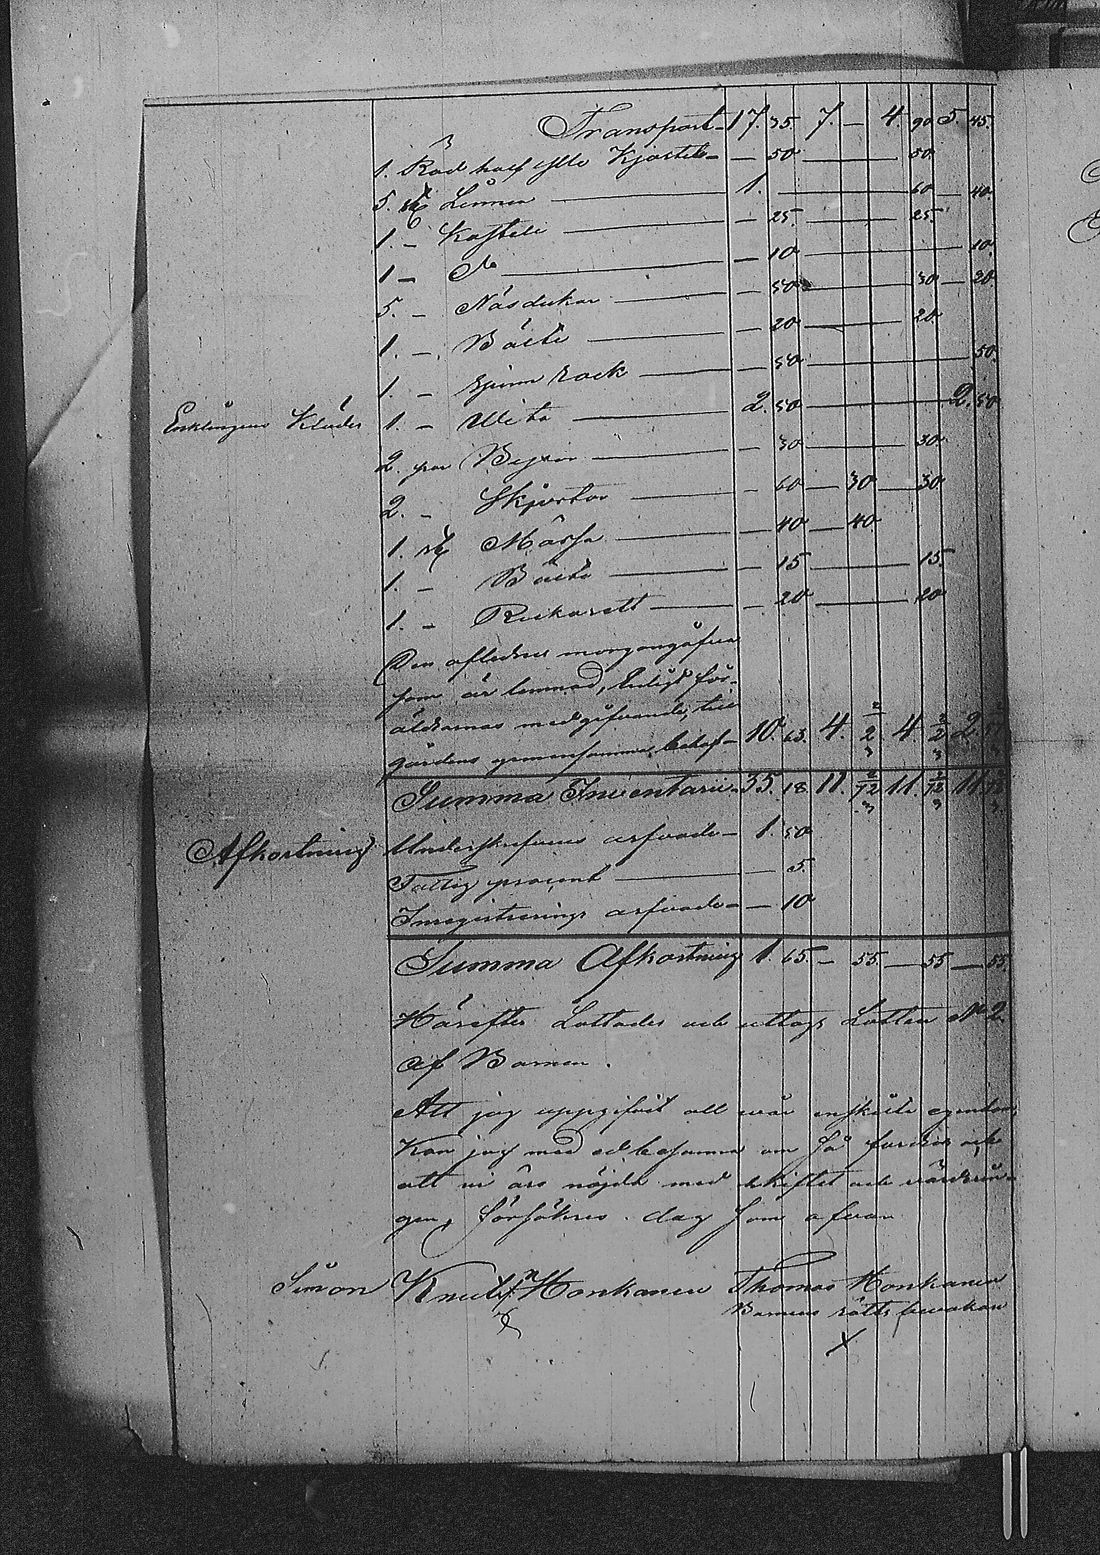 Transport 17. 35. 7. – 4. 90 5. 45.
1. Röd half ylle Kjortel – 50 – 50
5. st Linnen 1. – 60 – 40.
1 – – 25. – 25.
1 – Do – 10 – 10
5. – Näsdukar – 50 – 30 – 20
1. – Bälte – 20 – 20
1. – Spinn rock – 50 – 50.
Enklingens Kläder 1. – 2. 50 – 2. 50
2. par Byxor – 30 – 30
2. – Skjortor – 60 – 30 – 30
1. st Mössa – 40 – 40
1. – Bälte – 15 – 15.
1. – – 20 – 20
Den aflednes morgongåfva
som är lemnad, enligt för-
äldrarnas medgifvande, till
gårdens gemensamma behof – 10. 63. 4. 4 2
Summa Inventarii 35. 18. 11. 11. 11.
Afkortning Underskrifvens arfvode – 1. 50
Fattig procent – 5.
Inregistrerings arfvode – – 10
Summa Afkortning 1. 65. – 55. – 55 – 55.
Härefter Lottades och uttogs Lotten No 2
af Barnen.
Att jag uppgifvit all vår enskilte egendom,
Kan jag med ed besanna om så fordras och
att vi äro nöjda med skiftet och värderin-
gen, försäkras. dag som ofvan
Simon Knutsn Honkanen Thomas Honkanen
Barnens rätts bevakare
X